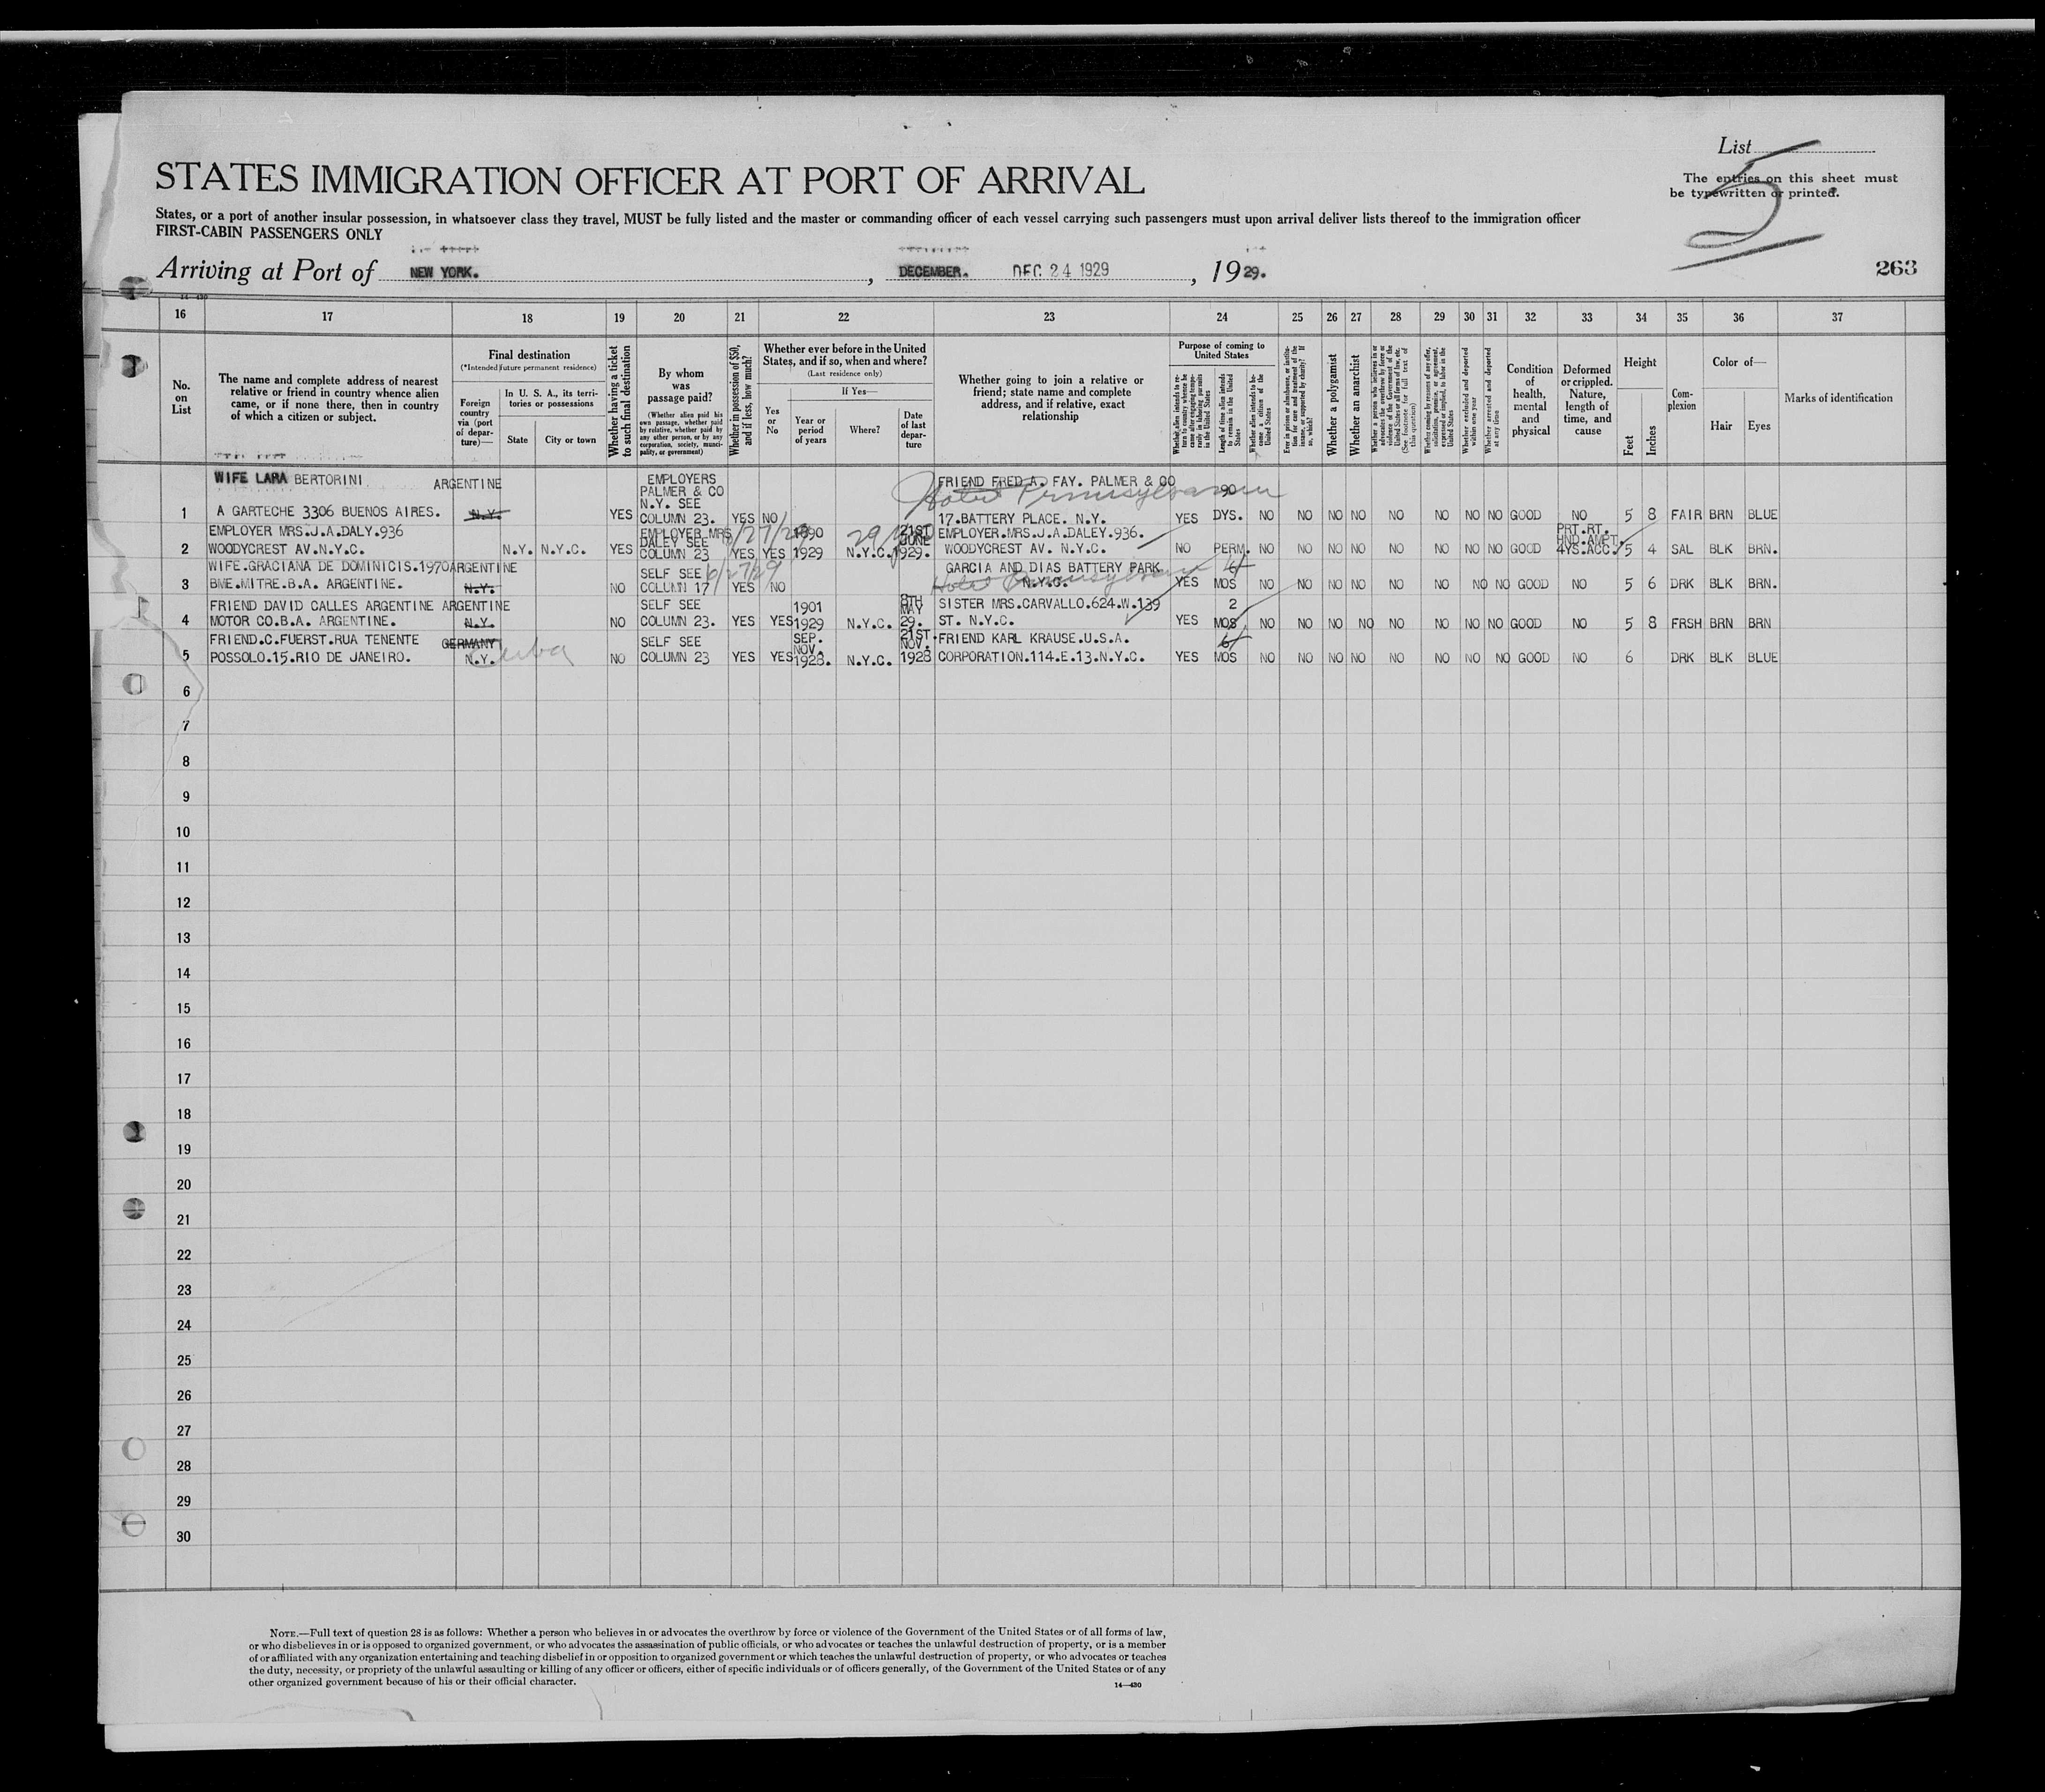 List 5
STATES IMMIGRATION OFFICER AT PORT OF ARRIVAL
The entries on this sheet must
be typewritten or printed.
States, or a port of another insular possession, in whatsoever class they travel, MUST be fully listed and the master or commanding officer of each vessel carrying such passengers must upon arrival deliver lists thereof to the immigration officer
FIRST-CABIN PASSENGERS ONLY
Arriving at Port of NEW YORK. , DECEMBER. DEC 24 1929 , 1929.
263
14—430
16 17 18 19 20 21 22 23 24 25 26 27 28 29 30 31 32 33 34 35 36 37
No. on List
The name and complete address of nearest relative or friend in country whence alien came, or if none there, then in country of which a citizen or subject.
Final destination
(*Intended future permanent residence)
Foreign country via (port of departure)—
In U. S. A., its territories or possessions
State
City or town
Whether having a ticket to such final destination
By whom was passage paid?
(Whether alien paid his own passage, whether paid by relative, whether paid by any other person, or by any corporation, society, municipality, or government)
Whether in possession of $50, and if less, how much?
Whether ever before in the United States, and if so, when and where?
(Last residence only)
Yes or No
If Yes—
Year or period of years
Where?
Date of last departure
Whether going to join a relative or friend; state name and complete address, and if relative, exact relationship
Purpose of coming to United States
Whether alien intends to return to country whence he came after engaging temporarily in laboring pursuits in the United States
Length of time alien intends to remain in the United States
Whether alien intends to become a citizen of the United States
Ever in prison or almshouse, or institution for care and treatment of the insane, or supported by charity? If so, which?
Whether a polygamist
Whether an anarchist
Whether a person who believes in or advocates the overthrow by force or violence of the Government of the United States or all forms of law, etc. (See footnote for full text of this question)
Whether coming by reasons of any offer, solicitation, promise, or agreement, expressed or implied, to labor in the United States
Whether excluded and deported within one year
Whether arrested and deported at any time
Condition of health, mental and physical
Deformed or crippled. Nature, length of time, and cause
Height
Feet
Inches
Complexion
Color of—
Hair
Eyes
Marks of identification
WIFE LARA BERTORINI ARGENTINE EMPLOYERS PALMER & CO N.Y. SEE FRIEND FRED A. FAY. PALMER & CO 90
Hotel Pennsylvania
1 A GARTECHE 3306 BUENOS AIRES. N.Y. YES COLUMN 23. YES NO 17.BATTERY PLACE. N.Y. YES DYS. NO NO NO NO NO NO NO NO GOOD NO 5 8 FAIR BRN BLUE
EMPLOYER MRS.J.A.DALY.936 EMPLOYER MRS DALEY SEE 1890 21ST JUNE EMPLOYER.MRS.J.A.DALEY.936. PRT.RT. HND.AMPT.
2 WOODYCREST AV.N.Y.C. N.Y. N.Y.C. YES COLUMN 23 YES YES 1929 N.Y.C. 1929. WOODYCREST AV. N.Y.C. NO PERM. NO NO NO NO NO NO NO NO GOOD 4YS.ACC. 5 4 SAL BLK BRN.
WIFE.GRACIANA DE DOMINICIS.1970 ARGENTINE SELF SEE 6/27/29 GARCIA AND DIAS BATTERY PARK 6
3 BME.MITRE.B.A. ARGENTINE. N.Y. NO COLUMN 17 YES NO N.Y.C. Hotel Pennsylvania YES MOS NO NO NO NO NO NO NO NO GOOD NO 5 6 DRK BLK BRN.
FRIEND DAVID CALLES ARGENTINE ARGENTINE SELF SEE 1901 8TH MAY SISTER MRS.CARVALLO.624.W.139 2
4 MOTOR CO.B.A. ARGENTINE. N.Y. NO COLUMN 23. YES YES 1929 N.Y.C. 29. ST. N.Y.C. YES MOS NO NO NO NO NO NO NO NO GOOD NO 5 8 FRSH BRN BRN
FRIEND.C.FUERST.RUA TENENTE GERMANY SELF SEE SEP. NOV. 21ST. NOV. FRIEND KARL KRAUSE.U.S.A. 6
5 POSSOLO.15.RIO DE JANEIRO. N.Y. Cuba NO COLUMN 23 YES YES 1928. N.Y.C. 1928 CORPORATION.114.E.13.N.Y.C. YES MOS NO NO NO NO NO NO NO NO GOOD NO 6 DRK BLK BLUE
6
7
8
9
10
11
12
13
14
15
16
17
18
19
20
21
22
23
24
25
26
27
28
29
30
NOTE.—Full text of question 28 is as follows: Whether a person who believes in or advocates the overthrow by force or violence of the Government of the United States or of all forms of law,
or who disbelieves in or is opposed to organized government, or who advocates the assassination of public officials, or who advocates or teaches the unlawful destruction of property, or is a member
of or affiliated with any organization entertaining and teaching disbelief in or opposition to organized government or which teaches the unlawful destruction of property, or who advocates or teaches
the duty, necessity, or propriety of the unlawful assaulting or killing of any officer or officers, either of specific individuals or of officers generally, of the Government of the United States or of any
other organized government because of his or their official character.
14—430